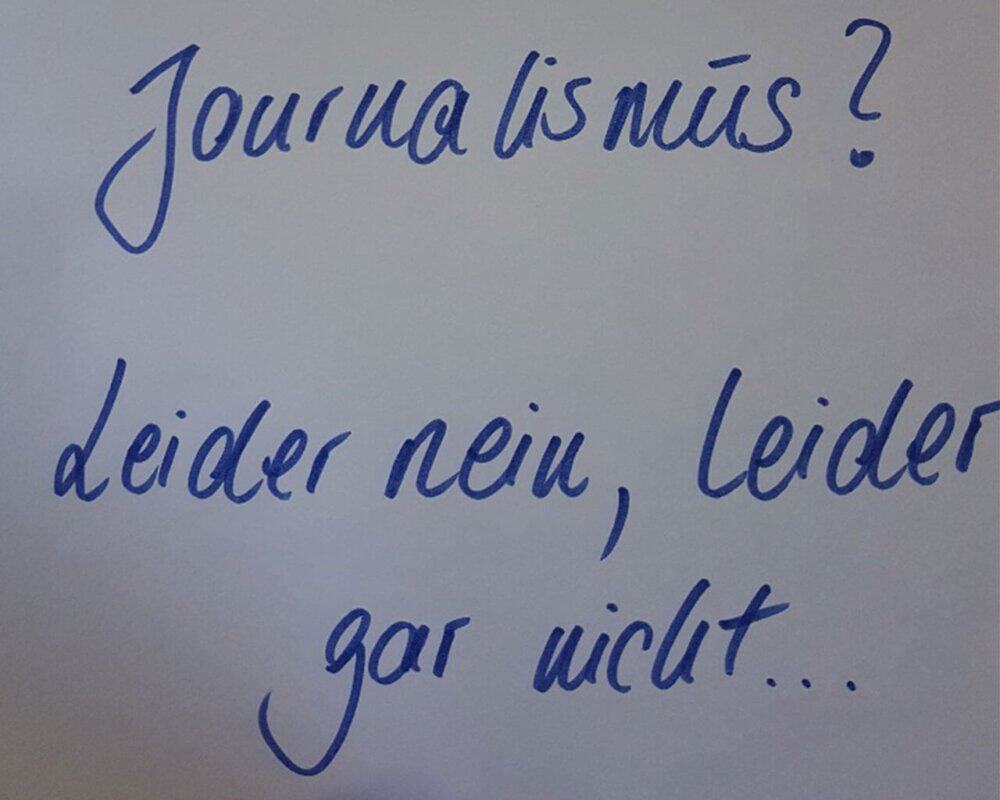 Journalismus?
Leider nein, leider
gar nicht...